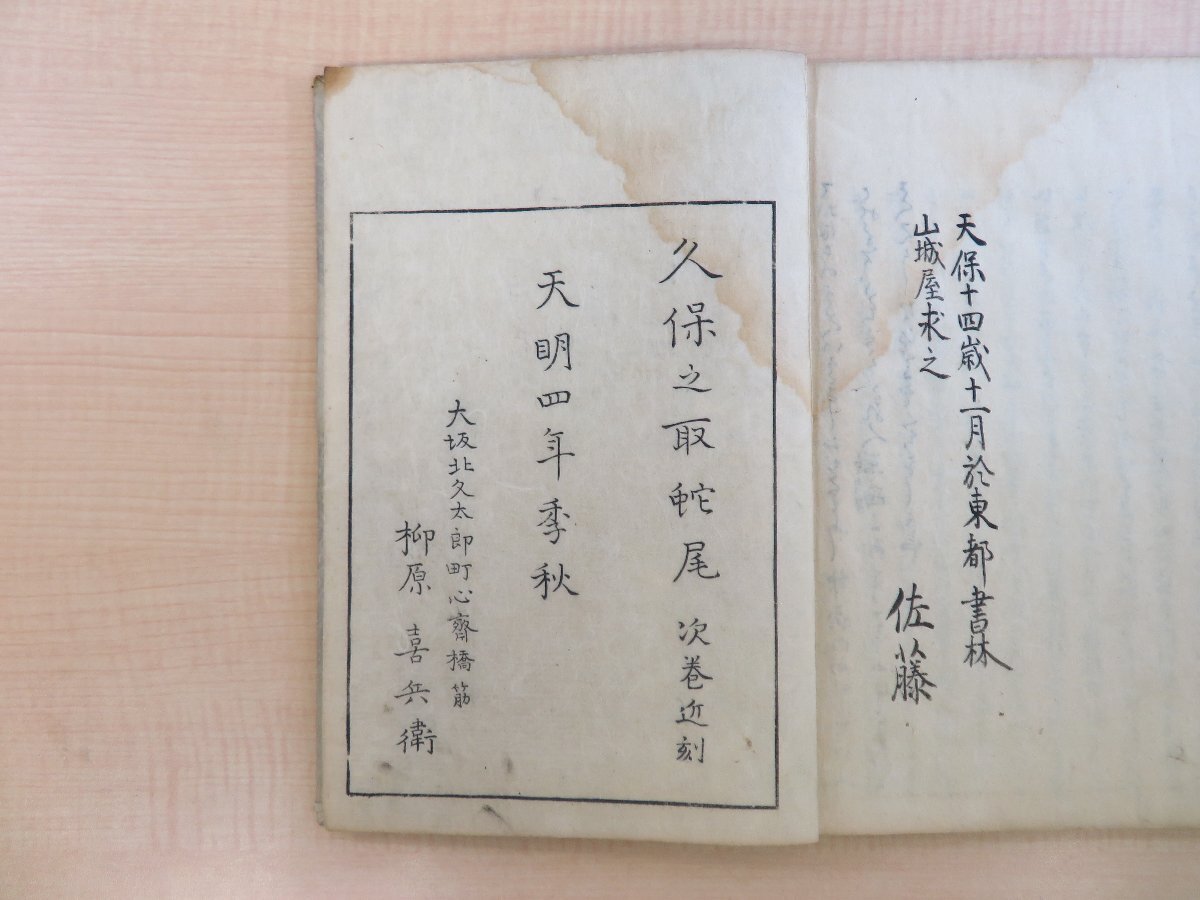 天保十四歳十一月於東都書林
山城屋求之
佐藤
久保之取蛇尾 次巻近刻
天明四年季秋
大坂北久太郎町心齋橋筋
柳原喜兵衛